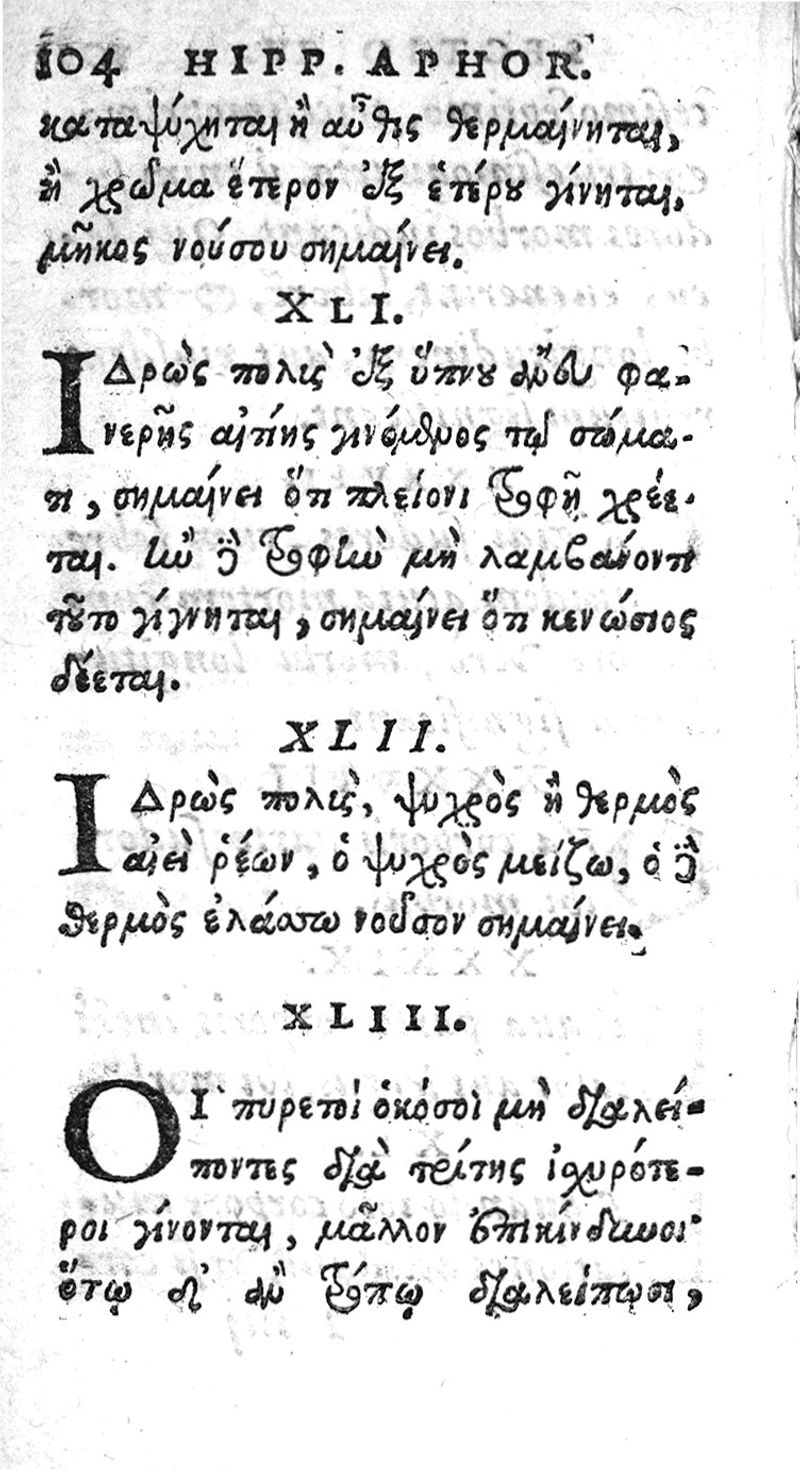 104 HIPP. APHOR.
καταψύχηται ἢ αὖθις θερμαίνηται,
ἢ χρῶμα ἕτερον ἐξ ἑτέρου γίνηται,
μῆκος νούσου σημαίνει.
XLI.
ΙΔρὼς πολὺς ἐξ ὕπνου ἄνευ φα-
νερῆς αἰτίης γινόμενος τῷ σώμα-
τι, σημαίνει ὅτι πλείονι τροφῇ χρέε-
ται. ἢν δὲ τροφὴν μὴ λαμβάνοντι
τοῦτο γίγνηται, σημαίνει ὅτι κενώσιος
δέεται.
XLII.
ΙΔρὼς πολὺς, ψυχρὸς ἢ θερμὸς
αἰεὶ ῥέων, ὁ ψυχρὸς μείζω, ὁ δὲ
θερμὸς ἐλάσσω νοῦσον σημαίνει.
XLIII.
ΟΙ πυρετοὶ ὁκόσοι μὴ διαλεί-
ποντες διὰ τρίτης ἰσχυρότε-
ροι γίνονται, μᾶλλον ἐπικίνδυνοι·
ὅτῳ δ' ἂν τρόπῳ διαλείπωσι,